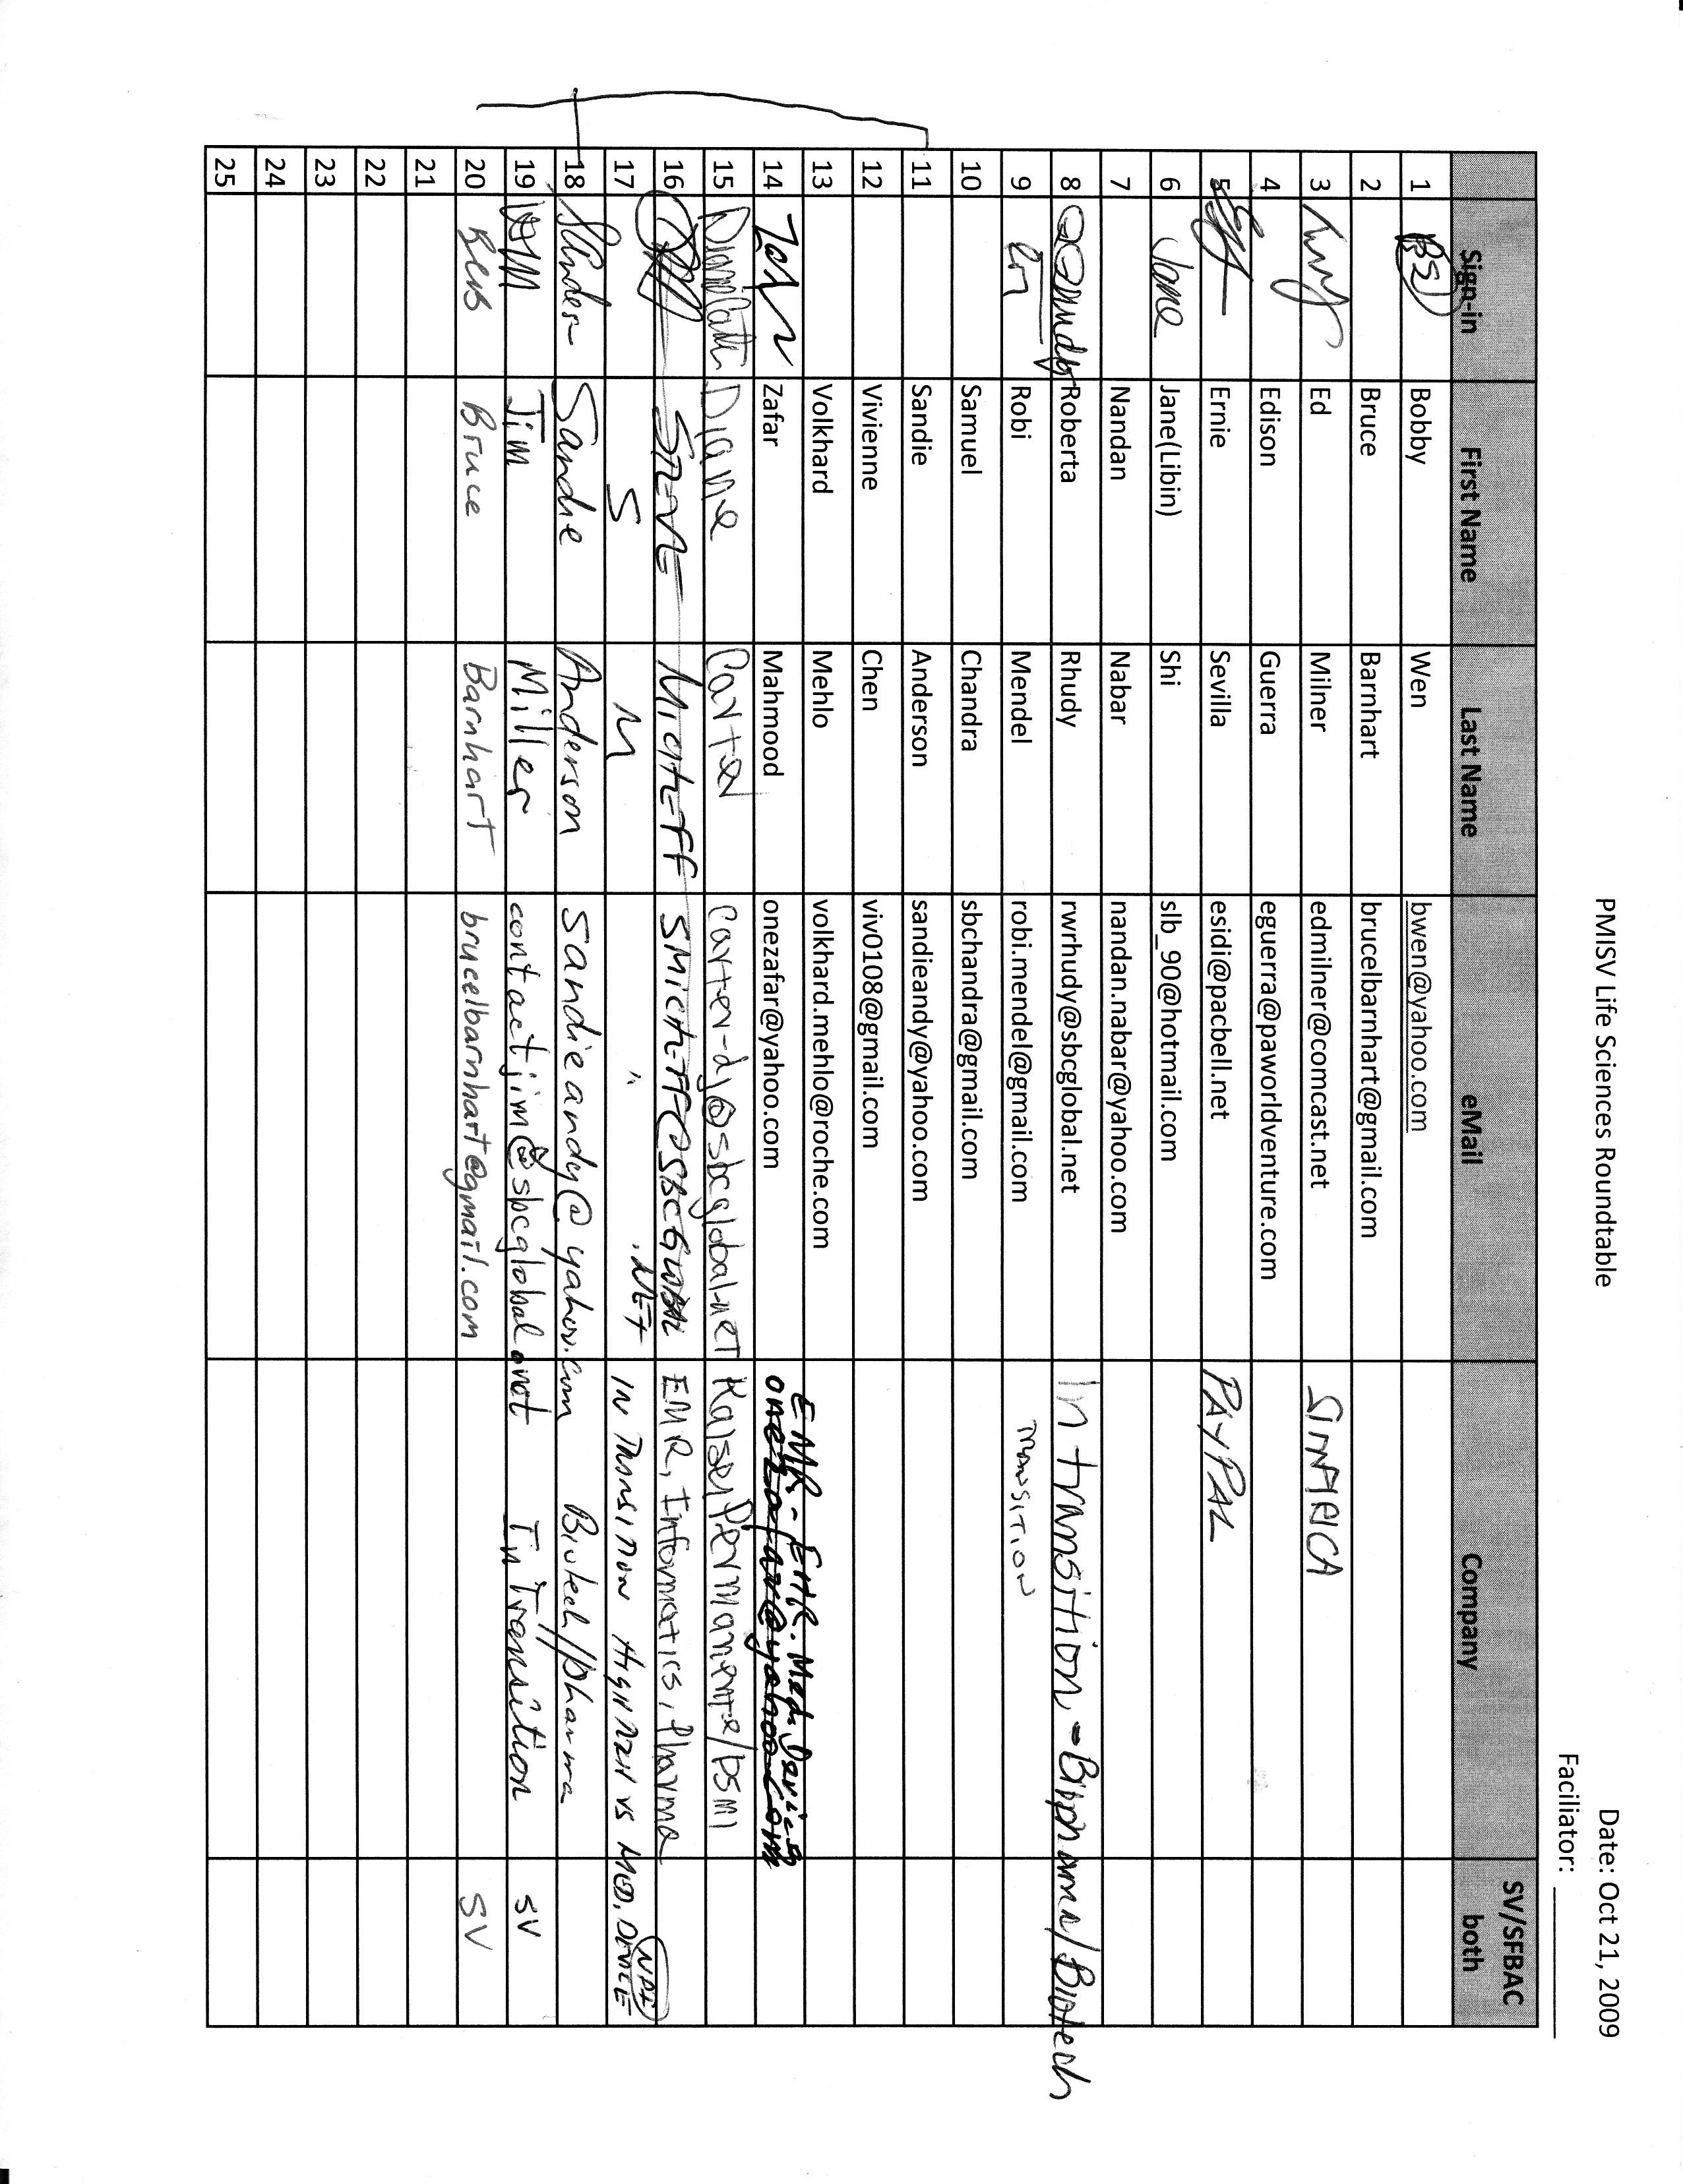 PMISV Life Sciences Roundtable
Date: Oct 21, 2009
Faciliator:
Sign-in First Name Last Name eMail Company SV/SFBAC both
1 Bobby Wen bwen@yahoo.com
2 Bruce Barnhart brucelbarnhart@gmail.com
3 Ed Milner edmilner@comcast.net
4 Edison Guerra eguerra@paworldventure.com
5 Ernie Sevilla esidi@pacbell.net PAYPAL
6 Jane Jane(Libin) Shi slb_90@hotmail.com
7 Nandan Nabar nandan.nabar@yahoo.com
8 Roberta Rhudy rwrhudy@sbcglobal.net In transition, - Biopharma/Biotech
9 Robi Mendel robi.mendel@gmail.com TRANSITION
10 Samuel Chandra sbchandra@gmail.com
11 Sandie Anderson sandieandy@yahoo.com
12 Vivienne Chen viv0108@gmail.com
13 Volkhard Mehlo volkhard.mehlo@roche.com
14 Zafar Mahmood onezafar@yahoo.com EMR - EHR. Med. Devices
onezafar@yahoo.com
15 Diane Carter carter-dj@sbcglobal.net Kaiser Permanente/PSMI
16 EMR, Informatics, Pharma
17 S M " .NET IN TRANSITION VS MED, DEVICE
18 Sandie Anderson Sandieandy@yahoo.com Biotech/pharma
19 Jim Miller contactjim@sbcglobal.net In Transition SV
20 BLB Bruce Barnhart brucelbarnhart@gmail.com SV
21
22
23
24
25